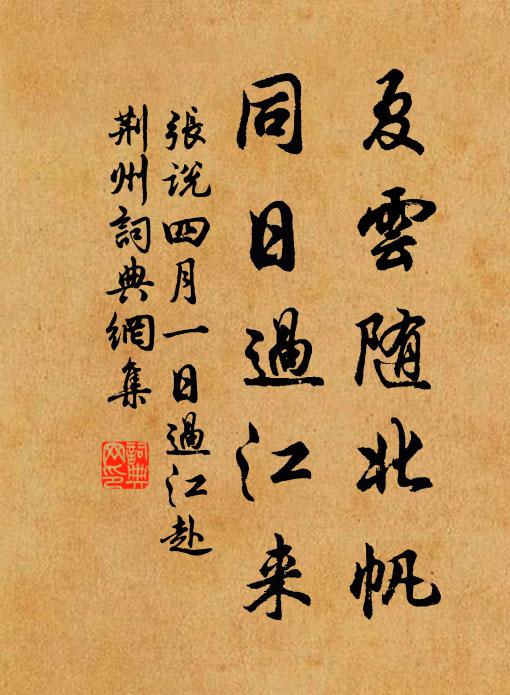 夏雲随北帆
同日過江来
張説四月一日過江赴
荆州詞典網集
詞典網印